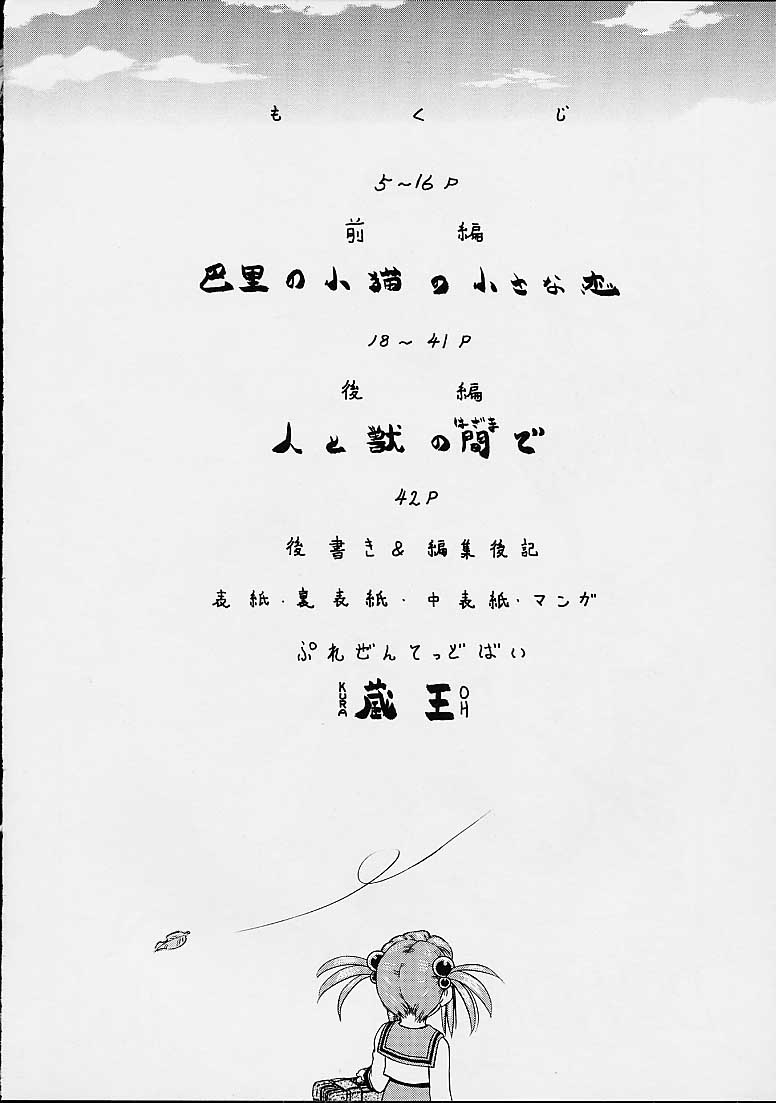 もくじ
5～16P
前編
巴里の小猫の小さな恋
18～41P
後編
人と獣の間で
はざま
42P
後書き&編集後記
表紙・裏表紙・中表紙・マンガ
ぷれぜんてっどばい
KURA 蔵王 OH